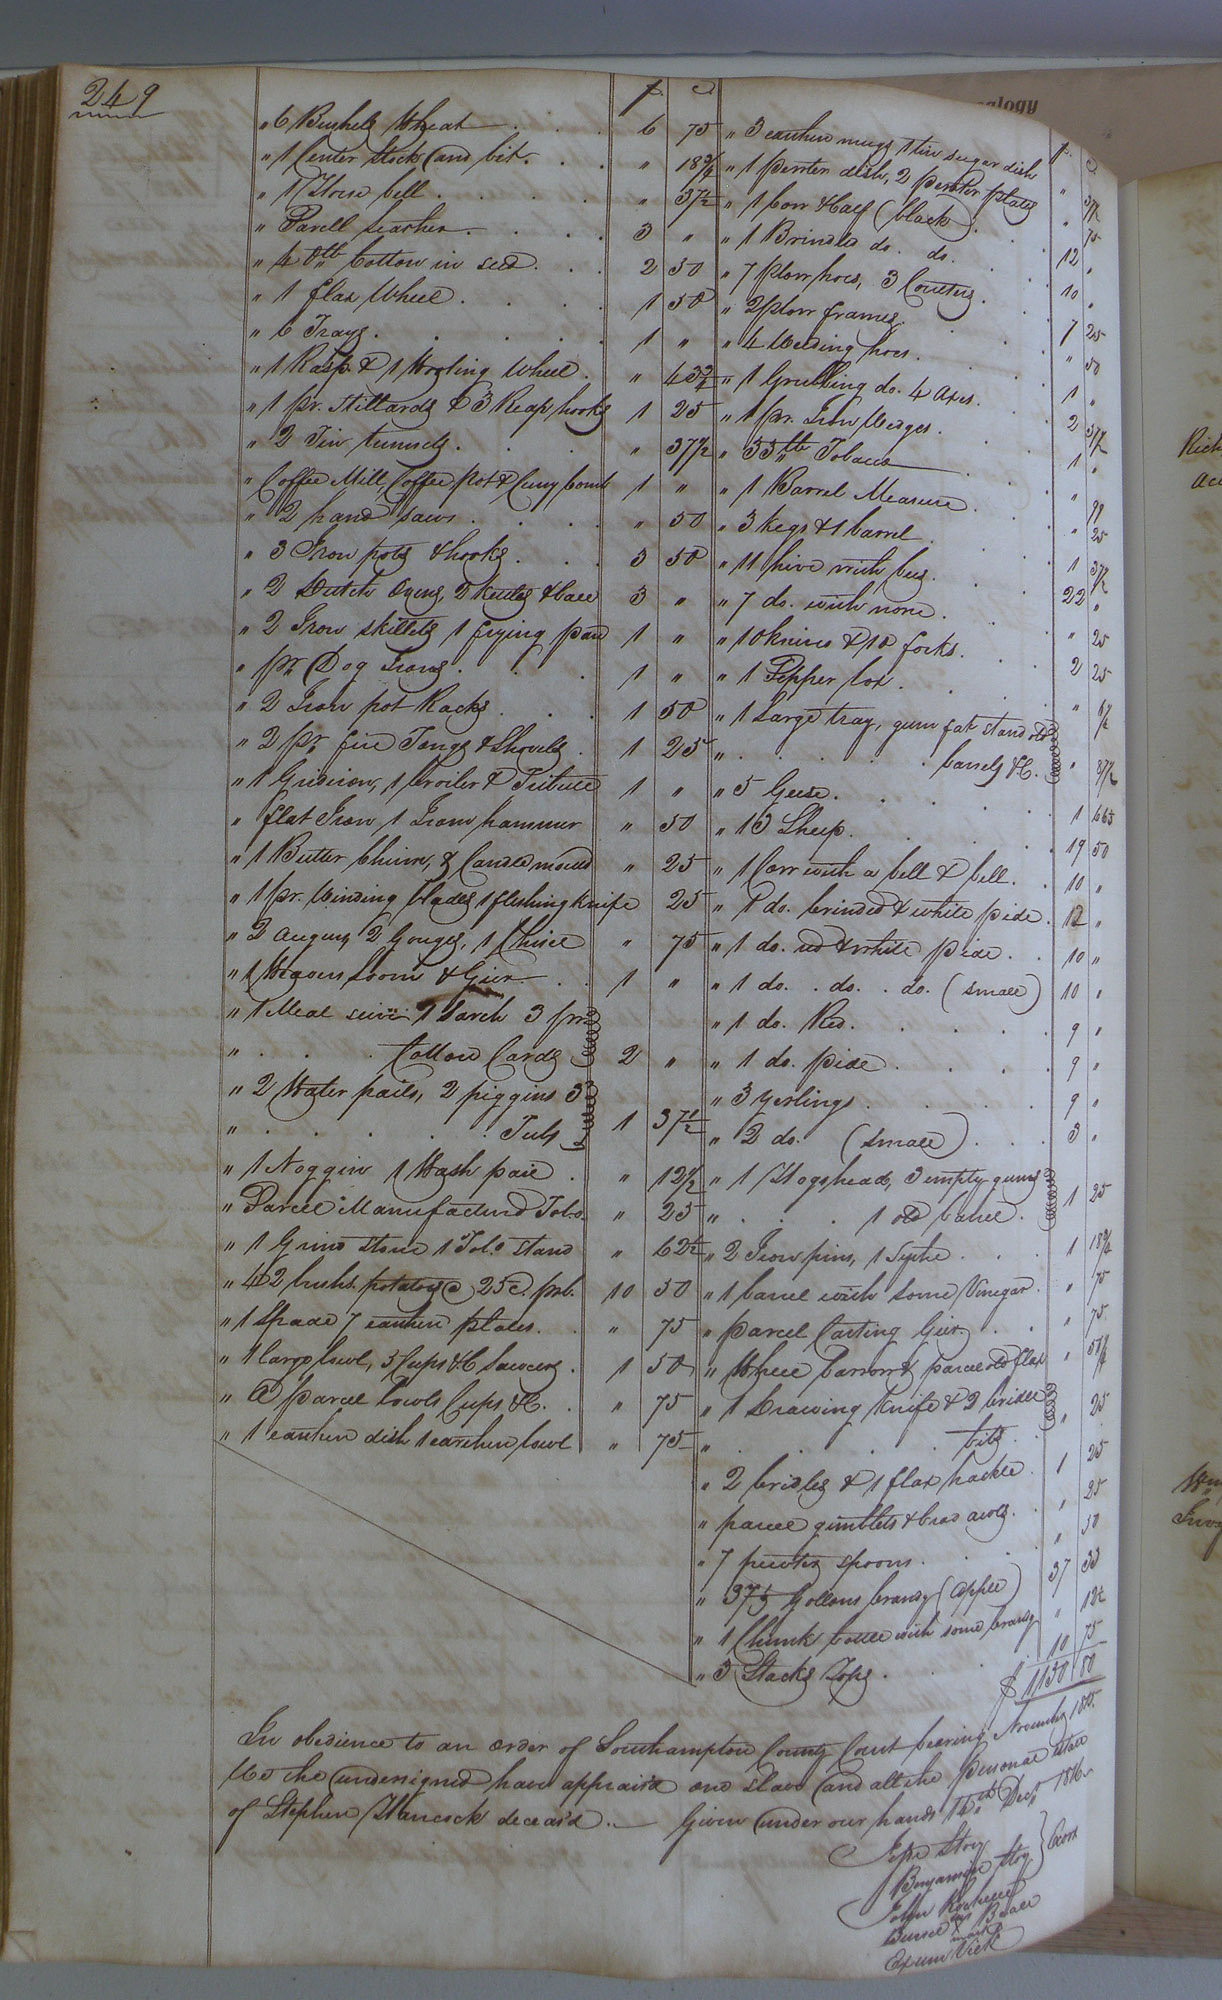 249
$ C
" 6 Bushels Wheat 6 75
" 1 Center Stock and bit 18 3/4
" 1 Horse bell " 37 1/2
" Parcell feathers 3 "
" 40 lb Cotton in seed 2 50
" 1 flax Wheel 1 50
" 6 Trays 1 "
" 1 Rasp & 1 Wooling Wheel " 43 3/4
" 1 pr. Stillards & 3 Reap hooks 1 25
" 2 Tin tunnels " 37 1/2
" Coffee Mill, Coffee pot & Curry comb 1 "
" 2 hand saws " 50
" 3 Iron pots & hooks 3 50
" 2 Dutch Ovens, 2 kettles 3 "
" 2 Iron skillets 1 frying pan 1 "
" pr Dog Irons 1 "
" 2 Iron pot Racks 1 50
" 2 pr. fire Tongs & Shovels 1 25
" 1 Gridiron, 1 broiler & 1 "
" flat Iron, 1 Iron hammer " 50
" 1 Butter Churn, & Candle mould " 25
" 1 pr. Winding blades 1 fleshing knife 25
" 3 augurs, 2 Gouges, 1 Chisel " 75
" 1 Weavers Loom & Gier 1 "
" 1 Meal seive 1 Sarch 3 prs
" Cotton Cards 2 "
" 2 Water pails, 2 piggins 3
" Tubs 1 37 1/2
" 1 Noggin 1 Wash pail " 12 1/2
" Parcel Manufactured Tobo. " 25
" 1 Grind stone 1 Tobo stand " 62 1/2
" 42 bushs. potatoes @ 25c. prb. 10 50
" 1 Spade 7 earthen plates " 75
" 1 large bowl, 5 Cups & 6 Saucers 1 50
" A parcel bowls Cups &C. " 75
" 1 earthen dish 1 earthen bowl " 75
$ C
" 3 earthen mugs 1 tin sugar dish " 37 1/2
" 1 pewter dish, 2 pewter plates " 75
" 1 Cow & Calf (black) 12 "
" 1 Brindled do. do. 10 "
" 7 plow hoes, 3 Coulters 7 25
" 2 plow frames " 50
" 4 Weeding hoes 1 "
" 1 Grubbing do. 4 axes 2 37 1/2
" 1 pr. Iron Wedges 1 "
" 33 lb Tobacco " 99
" 1 Barrel Measure " 25
" 3 kegs & 1 barrel 1 37 1/2
" 11 hive with bees 22 "
" 7 do. with none " 25
" 10 knives & 10 forks 2 25
" 1 Pepper box "
" 1 large tray, gum fat stand old
" barrels &C. " 37 1/2
" 5 Geese 1
" 13 Sheep 19 50
" 1 Cow with a bell & bell 10 "
" 1 do. brinded & white pide 12 "
" 1 do. red & white pide 10 "
" 1 do. do. do. (small) 10 "
" 1 do. Red 9 "
" 1 do. pide 9 "
" 3 yerlings 9 "
" 2 do. (small) 3 "
" 1 Hogshead, 3 empty gums
" 1 old barrel 1 25
" 2 Iron pins, 1 Sythe 1 18 3/4
" 1 barrel with some Vinegar " 75
" parcel Carting Gier " 75
" Wheel barrow & parcel old flax "
" 1 Drawing Knife & 2 bridle
" bits " 25
" 2 bridles & 1 flax hackle 1 25
" parcel gimblets & brad awls " 25
" 7 pewter spoons " 50
" Gollons brandy (apple) 37 33
" 1 Chunk bottle with some brandy " 12 1/2
" 3 Stacks Tops 10 75
$ 1130 80
In obedience to an order of Southampton County Court bearing November 1815
We the undersigned have apprais'd one slave and all the personal estate
of Stephen Hancock deceas'd. Given under our hands Decr. 1815
Jesse Story
Benjamin Story
Exors
John
Burwell his Beale
mark
Exum Vick
Rich
W
Inv
alogy